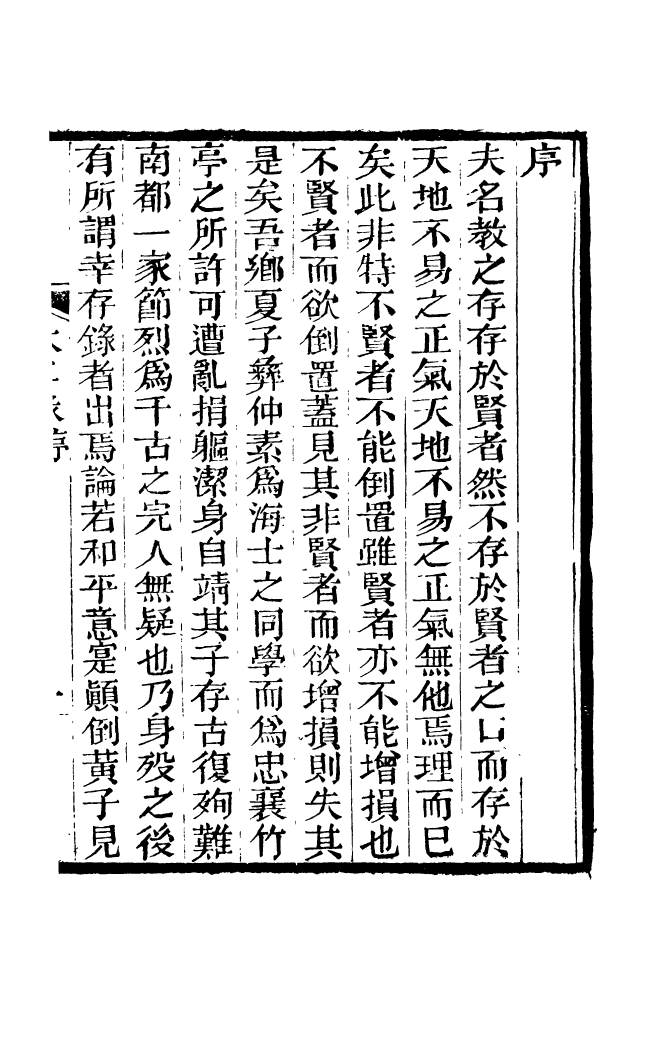 序
夫名教之存存於賢者然不存於賢者之口而存於
天地不易之正氣天地不易之正氣無他焉理而已
矣此非特不賢者不能倒置雖賢者亦不能增損也
不賢者而欲倒置蓋見其非賢者而欲增損則失其
是矣吾鄉夏子彝仲素為海士之同學而為忠襄竹
亭之所許可遭亂捐軀潔身自靖其子存古復殉難
南都一家節烈為千古之完人無疑也乃身歿之後
有所謂幸存錄者出焉論若和平意寔顛倒黃子見
序
一